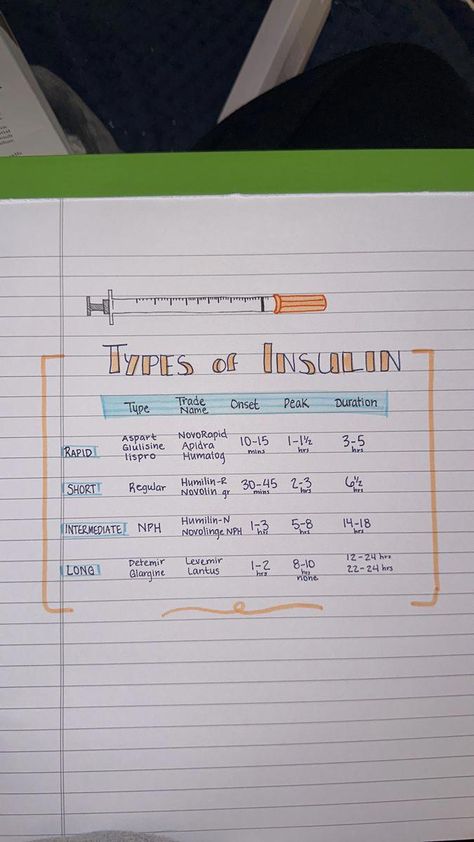 TYPES OF INSULIN
Type Trade Name Onset Peak Duration
RAPID
Aspart NovoRapid
Glulisine Apidra 10-15 mins 1-1½ hrs 3-5 hrs
lispro Humalog
SHORT Regular
Humilin-R 30-45 mins 2-3 hrs 6½ hrs
Novolin gr
INTERMEDIATE NPH
Humilin-N 1-3 hrs 5-8 hrs 14-18 hrs
Novolinge NPH
LONG
Detemir Levemir 1-2 hrs 8-10 hrs 12-24 hrs
Glargine Lantus none 22-24 hrs